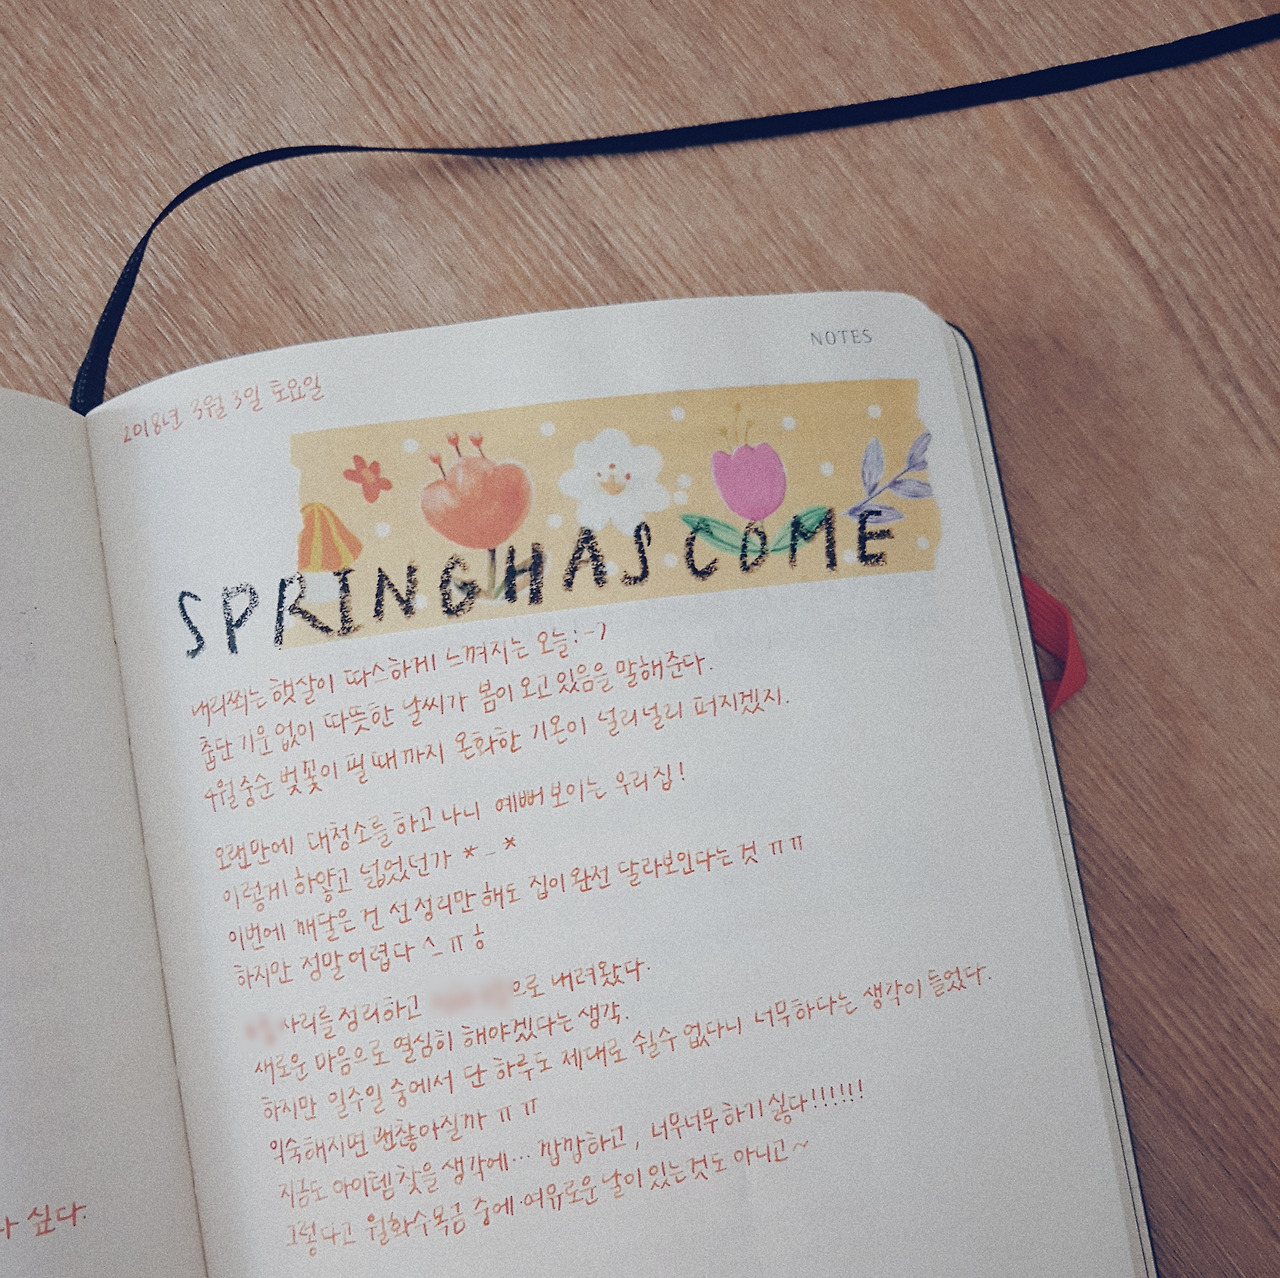 NOTES
2018년 3월 3일 토요일
SPRING HAS COME
내리쬐는 햇살이 따스하게 느껴지는 오늘:-)
춥단 기운 없이 따뜻한 날씨가 봄이 오고 있음을 말해준다.
4월 중순 벚꽃이 필 때까지 온화한 기온이 널리널리 퍼지겠지.
오랜만에 대청소를 하고 나니 예뻐 보이는 우리집!
이렇게 하얗고 넓었던가 *_*
이번에 깨달은 건 선정리만 해도 집이 완전 달라보인다는 것 ㅠㅠ
하지만 정말 어렵다 ㅅㅠㅎ
사리를 정리하고 으로 내려왔다.
새로운 마음으로 열심히 해야겠다는 생각.
하지만 일주일 중에서 단 하루도 제대로 쉴 수 없다니 너무하다는 생각이 들었다.
익숙해지면 괜찮아질까 ㅠㅠ
지금도 아이템 찾을 생각에... 깝깝하고, 너무너무 하기 싫다!!!!!!
그렇다고 월화수목금 중에 여유로운 날이 있는 것도 아니고~
싶다.